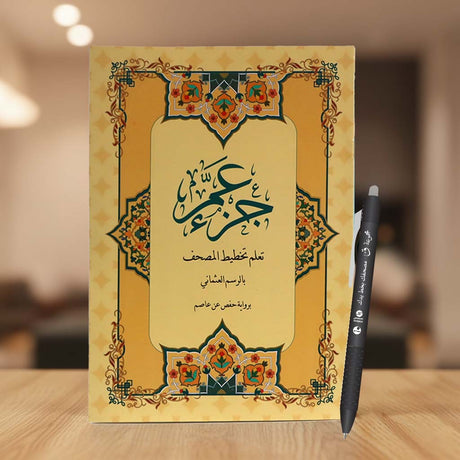 جزء عمّ
تعلم تخطيط المصحف
بالرسم العثماني
برواية حفص عن عاصم
مصحفك بخط يدك